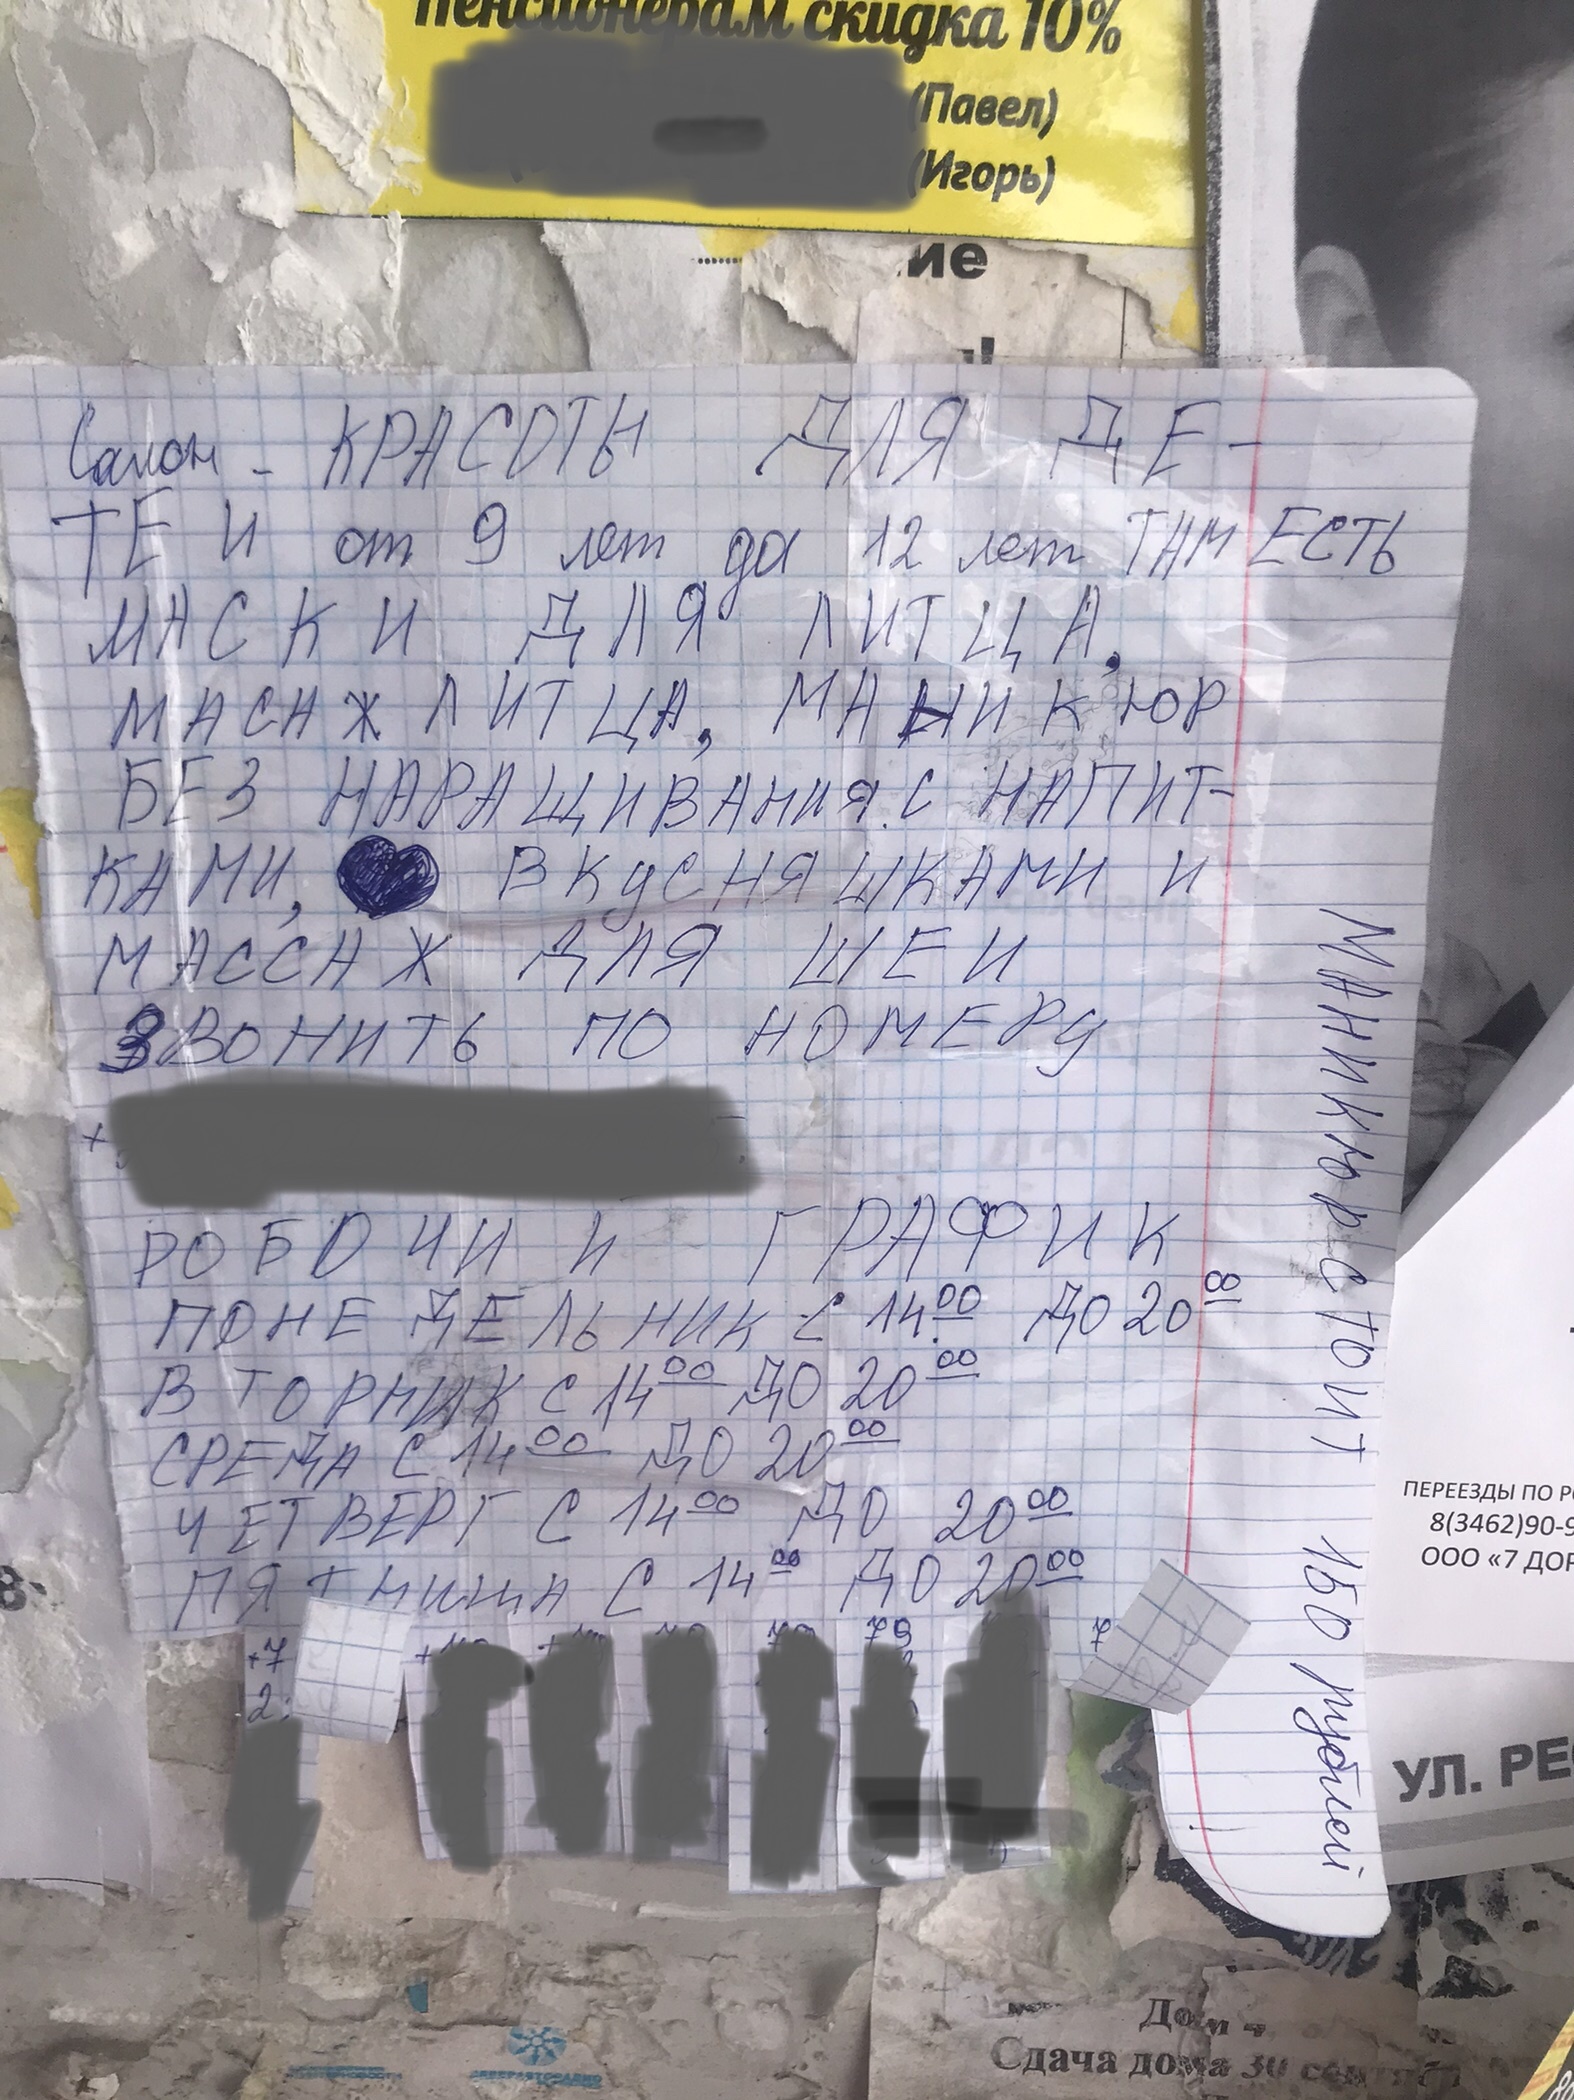 пенсионерам скидка 10%
(Павел)
(Игорь)
ие
Салон - КРАСОТЫ ДЛЯ ДЕ-
ТЕЙ от 9 лет да 12 лет ТАМ ЕСТЬ
МАСКИ ДЛЯ ЛИТЦА,
МАСАЖ ЛИТЦА, МАНИКЮР
БЕЗ НАРАЩИВАНИЯ. С НАПИТ-
КАМИ, ВКУСНЯШКАМИ И
МАССАЖ ДЛЯ ШЕИ
ЗВОНИТЬ ПО НОМЕРУ
+
РОБОЧИИ ГРАФИК
ПОНЕДЕЛЬНИК С 14.00 ДО 20 00
ВТОРНИК С 14 00 ДО 20 00
СРЕДА С 14 00 ДО 20 00
ЧЕТВЕРГ С 14 00 ДО 20 00
ПЯТНИЦА С 14 00 ДО 20 00
МАНИКЮР СТОИТ 150 рублей
+7
2
79
7
ПЕРЕЕЗДЫ ПО
8(3462)90-9
ООО «7 ДОР
УЛ. РЕС
8-
Дом
Сдача дома 30 сентябр